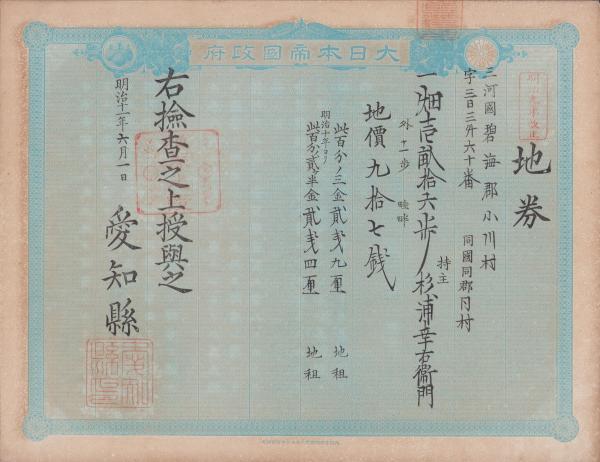 府政國帝本日大
地券
三河國碧海郡小川村
字三日三舛六十番
同國同郡同村
持主
一畑壱畝拾六歩
杉浦幸右衞門
外十一歩 畦畔
地價九拾七錢
此百分ノ三金貳戔九厘 地租
明治十年ヨリ
此百分ノ貳半金貳戔四厘 地租
右撿査之上授與之
明治十一年六月一日
愛知縣